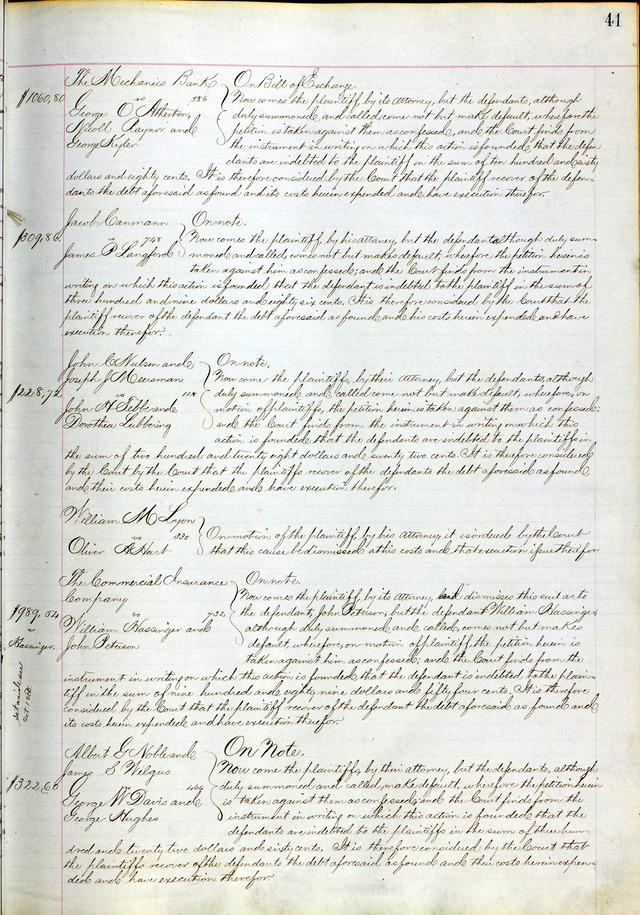 41
The Mechanics Bank On Bill of Exchange
$1060,80 vs 586 Now comes the plaintiff, by its Attorney, but the defendants, although
George O Atherton, duly summoned and called, come not but make default, wherefore the
Nicoll Raynor and petition is taken against them as confessed, and the Court finds from
George Kyler the instrument in writing on which this action is founded, that the defen-
dants are indebted to the plaintiff in the sum of ten hundred and sixty
dollars and eighty cents. It is therefore considered by the Court that the plaintiff recover of the defen-
dants the debt aforesaid as found and its costs herein expended and have execution therefor.
Jacob Tanmann On note.
$309,86 vs 748 Now comes the plaintiff, by his attorney, but the defendant although duly sum-
James P Langford moned and called, comes not but makes default, wherefore the petition herein is
taken against him as confessed; and the Court finds from the instrument in
writing on which this action is founded that the defendant is indebted to the plaintiff in the sum of
three hundred and nine dollars and eighty six cents. It is therefore considered by the Court that the
plaintiff recover of the defendant the debt aforesaid as found and his costs herein expended and have
execution therefor.
John C Nulsen and On note.
Joseph J Mersman Now come the plaintiffs, by their Attorney, but the defendants, although
$228,72 vs duly summoned and called come not but make default, wherefore, on
John H Tebbe and motion of plaintiffs, the petition herein is taken against them as confessed;
Dorothea Lubbring and the Court finds from the instrument in writing on which this
action is founded that the defendants are indebted to the plaintiffs in
the sum of two hundred and twenty eight dollars and seventy two cents. It is therefore considered
by the Court by the Court that the plaintiffs recover of the defendants the debt aforesaid as found
and their costs herein expended and have execution therefor.
William M Lyon
vs 830 On motion of the plaintiff by his Attorney it is ordered by the Court
Oliver A Hart that this cause be dismissed at his costs and that execution issue therefor
The Commercial Insurance On note.
Company Now comes the plaintiff, by its Attorney, and dismisses this suit as to
$989,54 vs 732 the defendant, John Peterson, but the defendant William Hassinger,
William Hassinger and although duly summoned and called, comes not but makes
Hassinger. John Peterson default, wherefore, on motion of plaintiff, the petition herein is
taken against him as confessed; and the Court finds from the
instrument in writing on which this action is founded that the defendant is indebted to the plain-
tiff in the sum of nine hundred and eighty nine dollars and fifty four cents. It is therefore
considered by the Court that the plaintiff recover of the defendant the debt aforesaid as found and
its costs herein expended and have execution therefor.
Albert G Noble and On Note.
James S Wilgus Now come the plaintiffs, by their attorney, but the defendants, although
$322,66 vs 464 duly summoned and called, make default, wherefore the petition herein
George W Davis and is taken against them as confessed; and the Court finds from the
George Hughes instrument in writing on which this action is founded that the
defendants are indebted to the plaintiffs in the sum of three hun-
dred and twenty two dollars and sixty cents. It is therefore considered by the Court that
the plaintiffs recover of the defendants the debt aforesaid as found and their costs herein expen-
ded and have execution therefor.